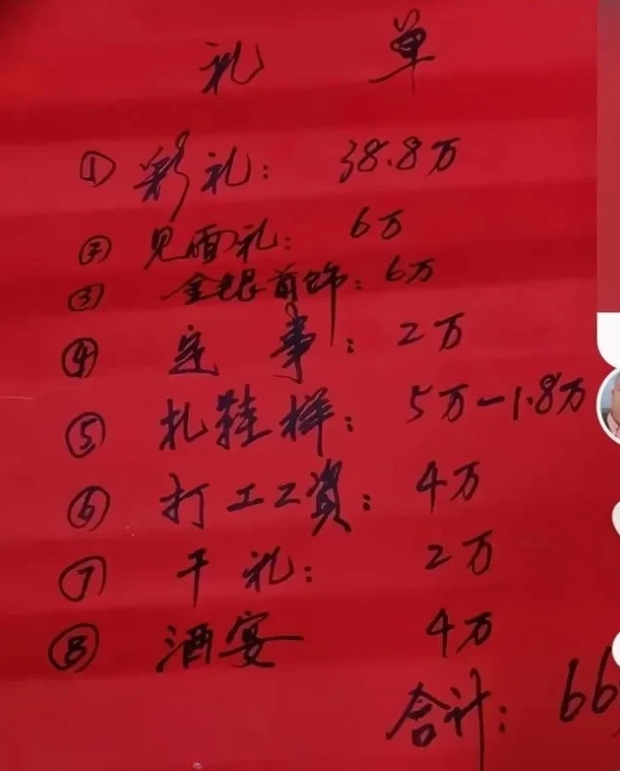 礼 单
① 彩礼： 38.8万
② 见面礼： 6万
③ 金银首饰：6万
④ 定 事： 2万
⑤ 扎鞋样： 5万—1.8万
⑥ 打工工資： 4万
⑦ 干 礼： 2万
⑧ 酒宴 4万
合计： 66